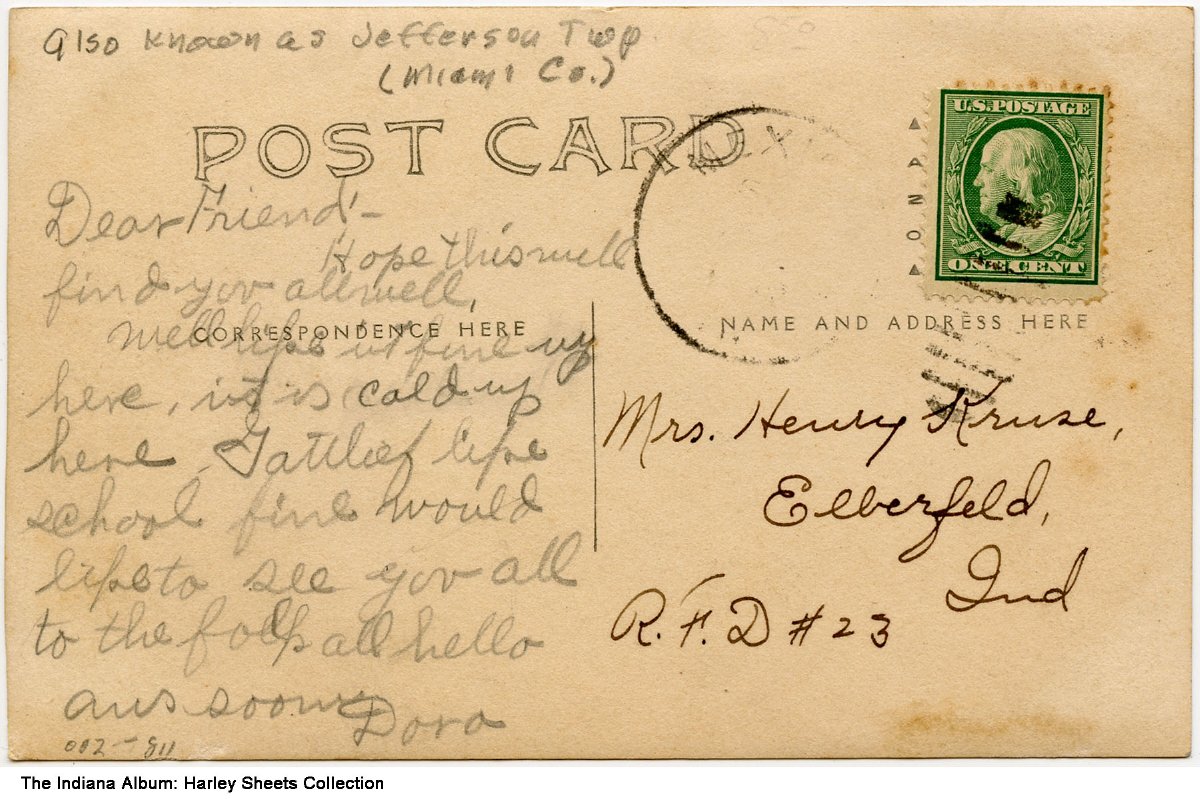 Also known as Jefferson Twp.
(Miami Co.)
POST CARD
MEXI
U.S. POSTAGE
ONE CENT
Dear Friend-
Hope this will
find you all well,
CORRESPONDENCE HERE
NAME AND ADDRESS HERE
Well like it fine up
here, it is cold up
here. like
school fine would
like to see you all
to the folks all hello
ans soon
Dora
Mrs. Henry Kruse,
Elberfeld,
Ind
R.F.D #23
002-811
The Indiana Album: Harley Sheets Collection